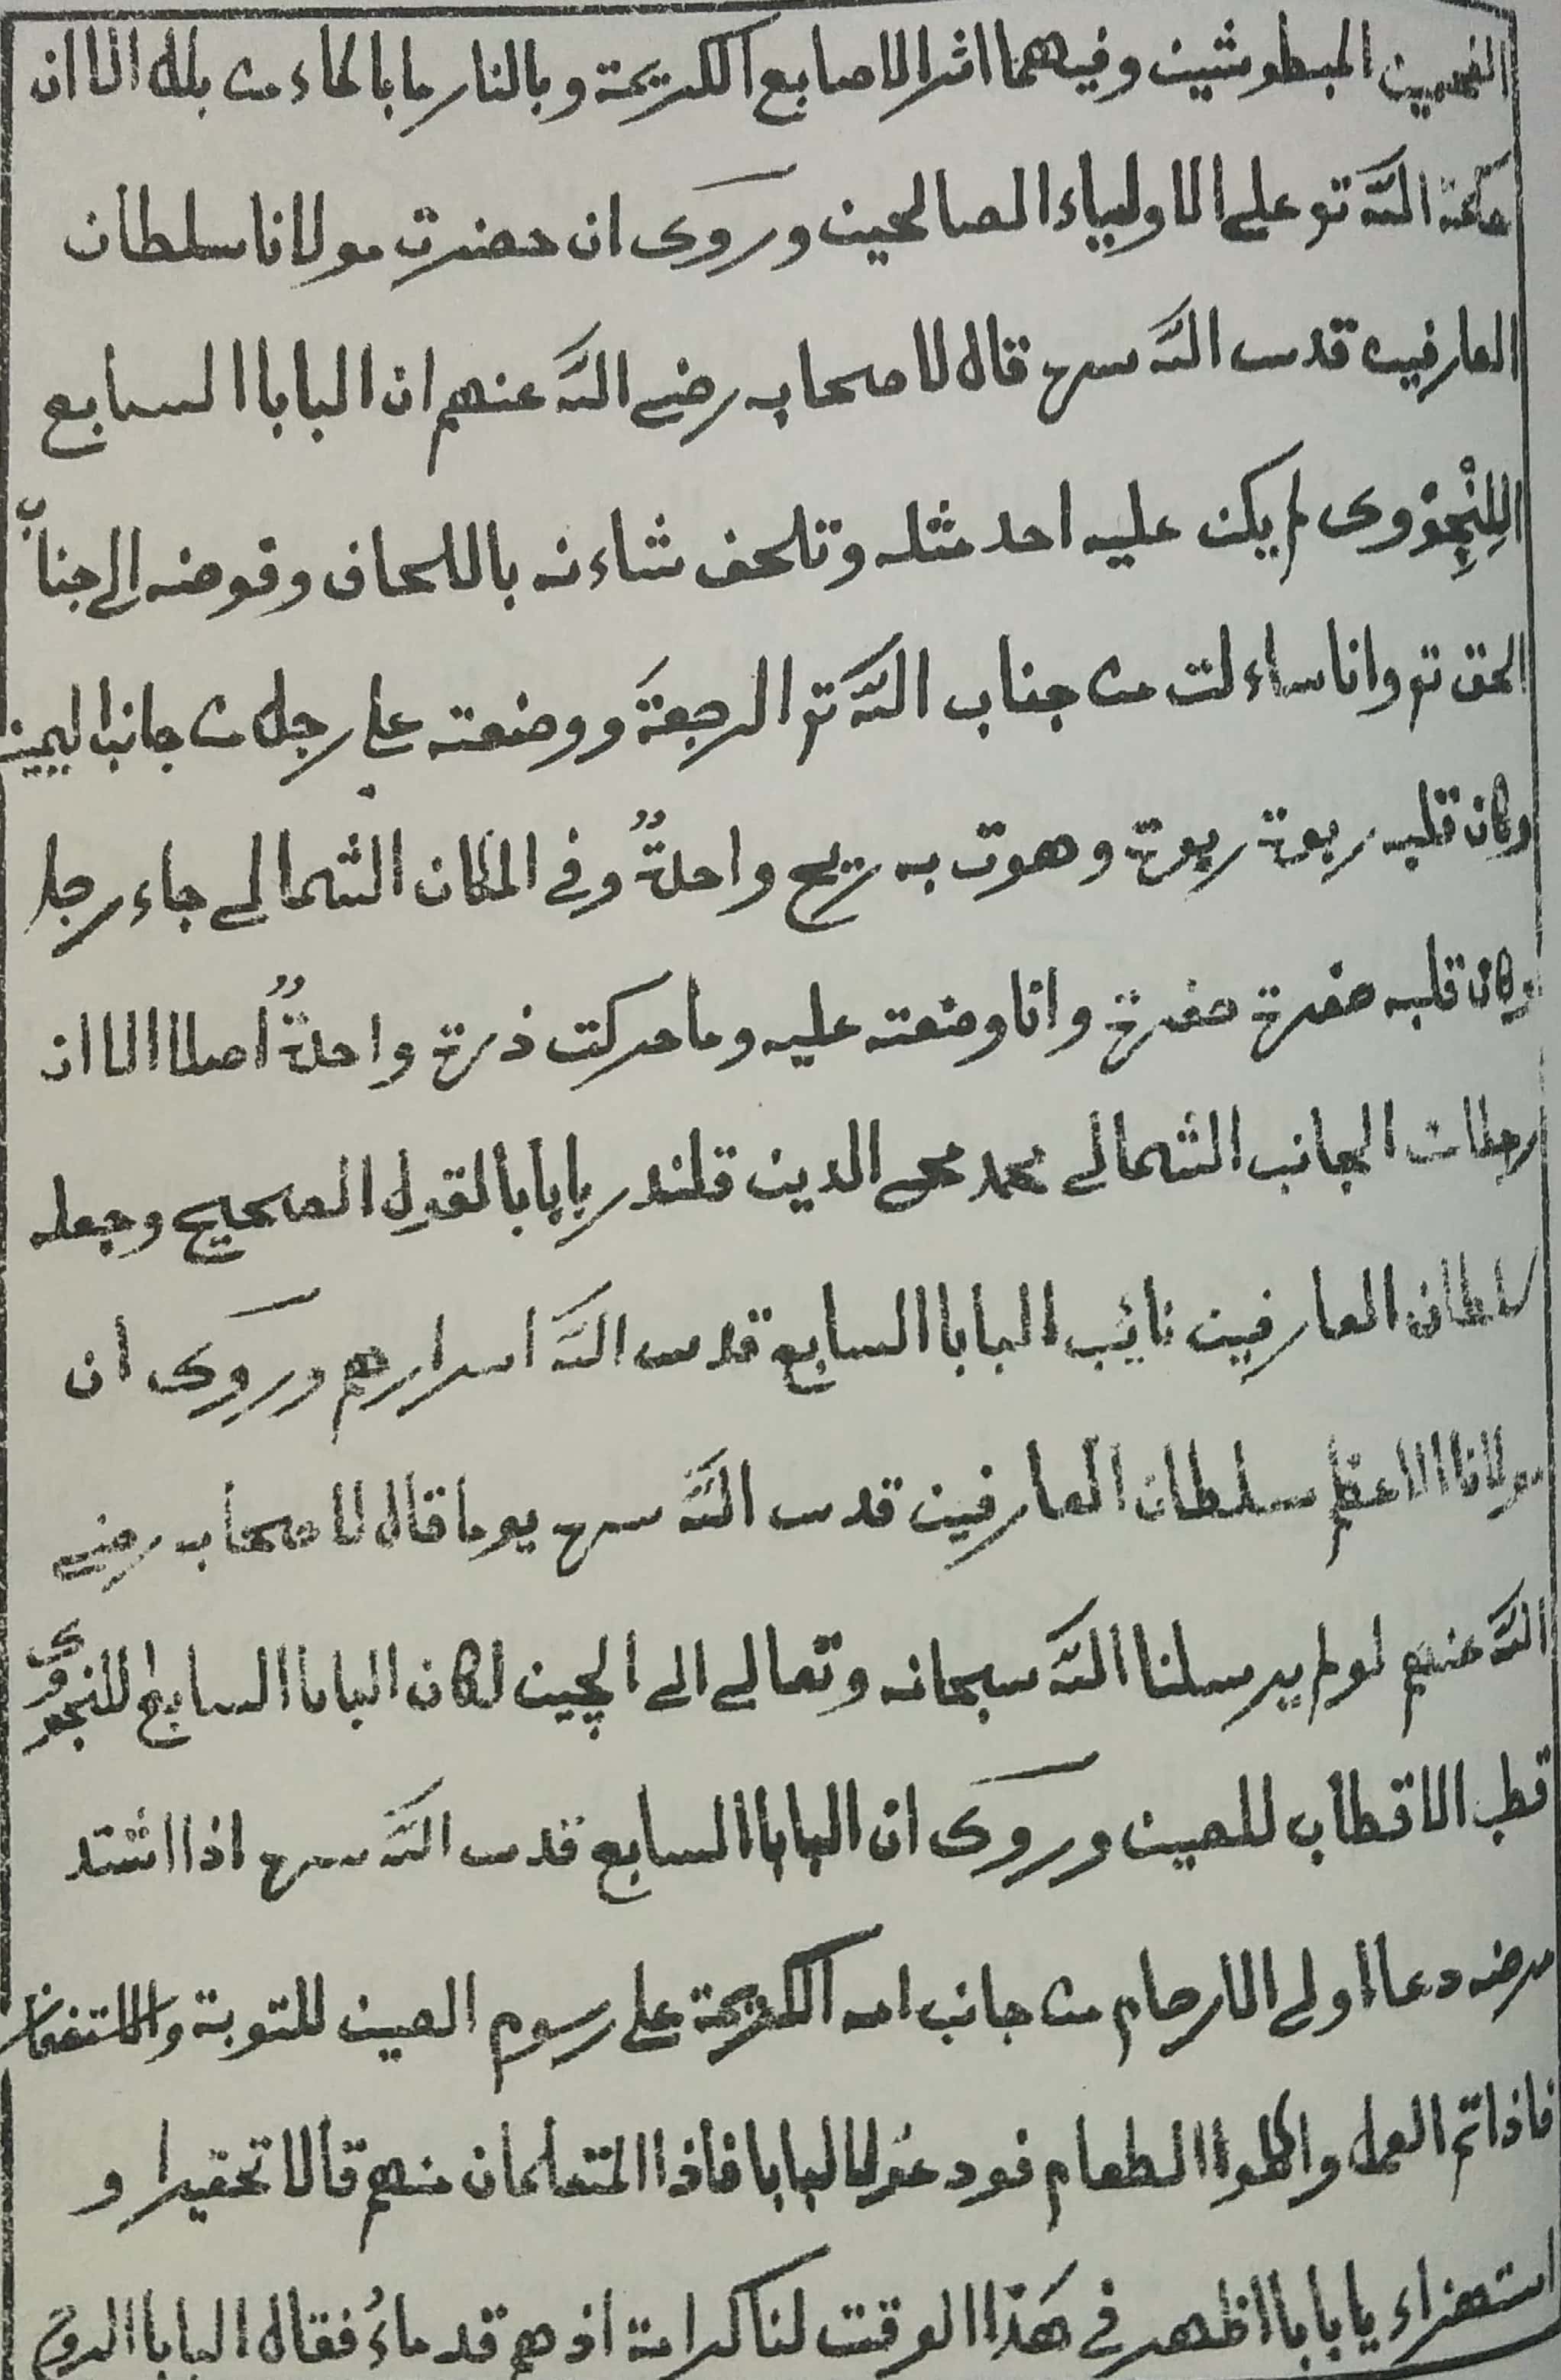 الفحمين المبطوشين وفيهما اثر الاصابع الكريمة وبالنار ما بالماء من بله الا ان
حكمة الله تو على الاولياء الصالحين وروى ان حضرت مولانا سلطان
العارفين قدس الله سره قال لاصحابه رضي الله عنهم ان البابا السابع
اللِنْجِوْوى لم يكن عليه احد مثله وتلحف شاءنه باللحاف وقوضه الى جناب
الحق تم وانا ساءلت من جناب الله تم الرجعةَ ووضعته على رجل من جانب اليمين
وكان قلبه ربوة ربوة وهوت به ريح واحدةٌ وفي المكان الشمالى جاء رجل
وكان قلبه صفرة صفرة وانا وضعته عليه وما حركت ذرة واحدةٌ اصلا الا ان
رجلان الجانب الشمالى محمد محى الدين قلندر بابا بالقول الصحيح وجعله
سلطان العارفين نائب البابا السابع قدس الله اسرارهم وروى ان
مولانا الاعظم سلطان العارفين قدس الله سره يوما قال لاصحابه رضي
الله عنهم لو لم يرسلنا الله سبحانه وتعالى الى الچين لكان البابا السابع للنجووى
قطب الاقطاب للصين وروى ان البابا السابع قدس الله سره اذا اشتد
مرضه دعا اولى الارحام من جانب امه الكريمة على رسوم الصين للتوبة والاستغفار
فاذا تم العمل واكلوا الطعام فودعُوا البابا فاذا المتعلمان منهم قالا تحقيرا و
استهزاء يا بابا اظهر في هَذا الوقت لنا كرامة اذ هم قدماءُ فقال البابا